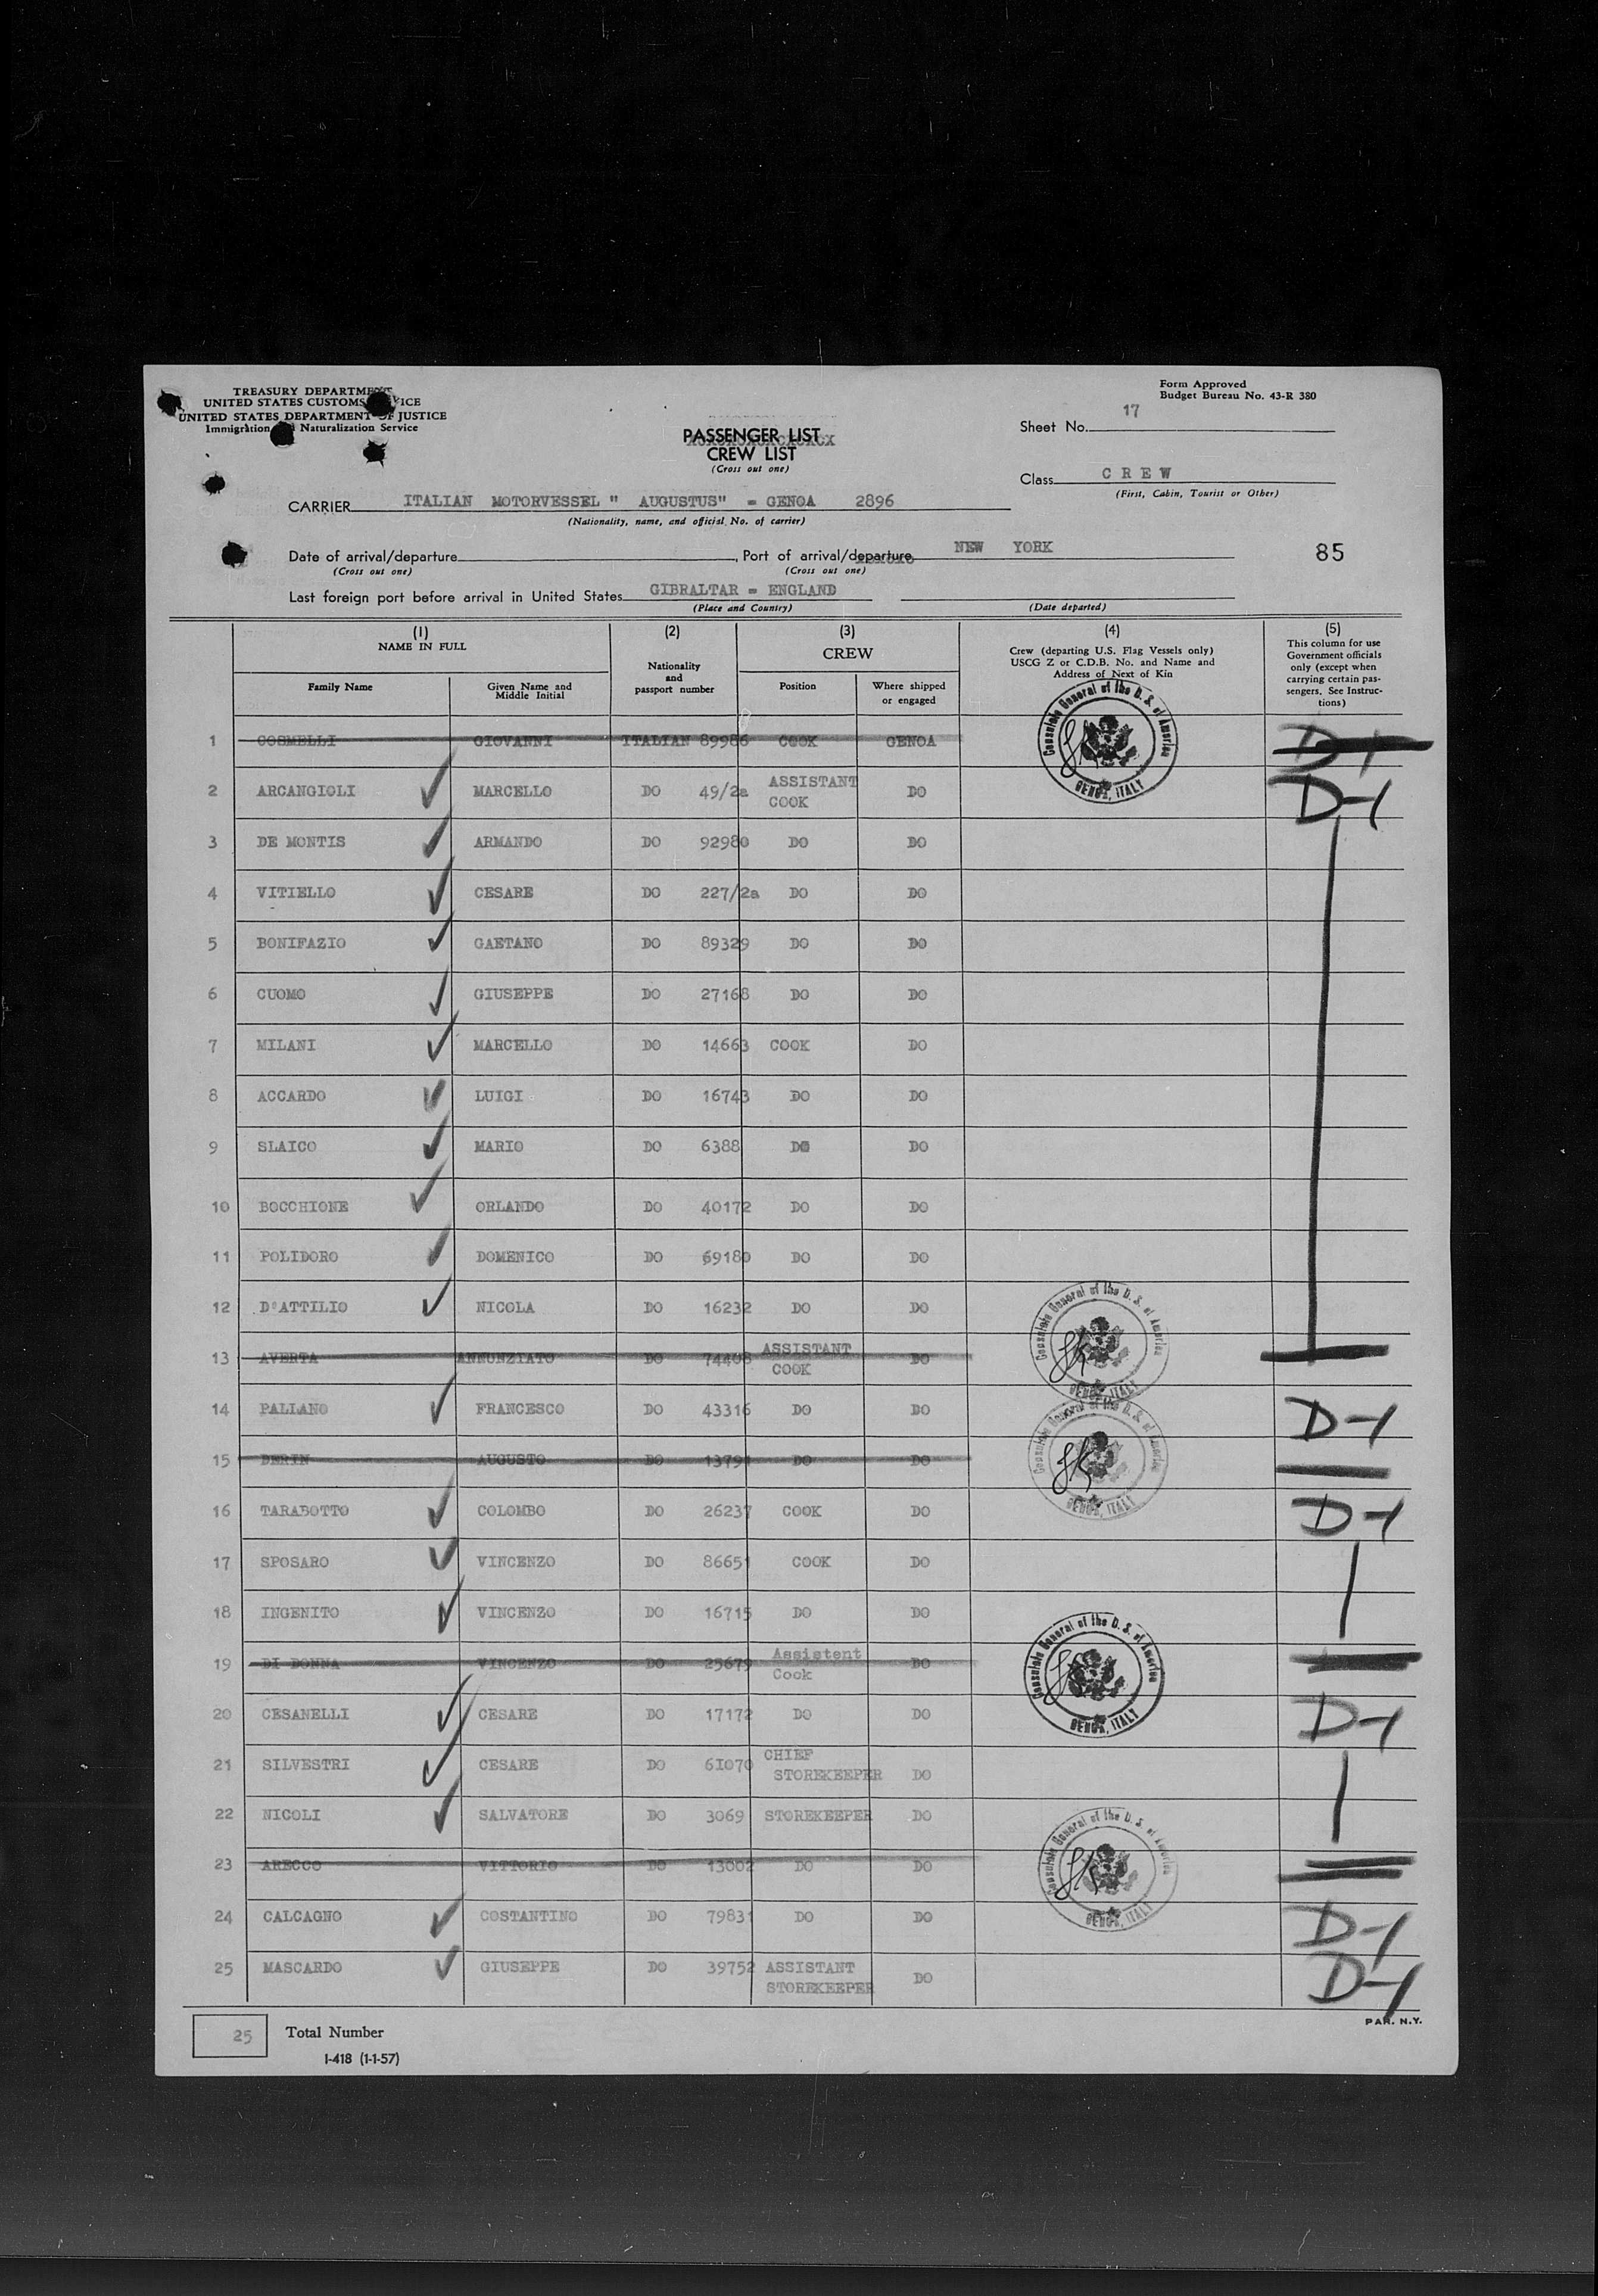 TREASURY DEPARTMENT
UNITED STATES CUSTOMS SERVICE
UNITED STATES DEPARTMENT OF JUSTICE
Immigration and Naturalization Service
Form Approved
Budget Bureau No. 43-R 380
PASSENGER LIST
CREW LIST
(Cross out one)
Sheet No. 17
Class CREW
(First, Cabin, Tourist or Other)
CARRIER ITALIAN MOTORVESSEL " AUGUSTUS" = GENOA 2896
(Nationality, name, and official No. of carrier)
Date of arrival/departure , Port of arrival/departure NEW YORK
(Cross out one) (Cross out one)
85
Last foreign port before arrival in United States GIBRALTAR = ENGLAND
(Place and Country) (Date departed)
(1) NAME IN FULL
Family Name
Given Name and Middle Initial
(2)
Nationality and passport number
(3) CREW
Position
Where shipped or engaged
(4)
Crew (departing U.S. Flag Vessels only)
USCG Z or C.D.B. No. and Name and
Address of Next of Kin
(5)
This column for use
Government officials
only (except when
carrying certain pas-
sengers. See Instruc-
tions)
1 COSMELLI GIOVANNI ITALIAN 89986 COOK GENOA D-1
2 ARCANGIOLI MARCELLO DO 49/2a ASSISTANT COOK DO D-1
3 DE MONTIS ARMANDO DO 92980 DO DO
4 VITIELLO CESARE DO 227/2a DO DO
5 BONIFAZIO GAETANO DO 89329 DO DO
6 CUOMO GIUSEPPE DO 27168 DO DO
7 MILANI MARCELLO DO 14663 COOK DO
8 ACCARDO LUIGI DO 16743 DO DO
9 SLAICO MARIO DO 6388 DO DO
10 BOCCHIONE ORLANDO DO 40172 DO DO
11 POLIDORO DOMENICO DO 69180 DO DO
12 D'ATTILIO NICOLA DO 16232 DO DO
13 AVERTA ANNUNZIATO DO 74408 ASSISTANT COOK DO
14 PALLANO FRANCESCO DO 43316 DO DO D-1
15 DERIN AUGUSTO DO 13791 DO DO
16 TARABOTTO COLOMBO DO 26237 COOK DO D-1
17 SPOSARO VINCENZO DO 86651 COOK DO
18 INGENITO VINCENZO DO 16715 DO DO
19 DI DONNA VINCENZO DO 25679 Assistent Cook DO
20 CESANELLI CESARE DO 17172 DO DO D-1
21 SILVESTRI CESARE DO 61070 CHIEF STOREKEEPER DO
22 NICOLI SALVATORE DO 3069 STOREKEEPER DO
23 ARECCO VITTORIO DO 13002 DO DO
24 CALCAGNO COSTANTINO DO 79831 DO DO D-1
25 MASCARDO GIUSEPPE DO 39752 ASSISTANT STOREKEEPER DO D-1
Consulate General of the U. S. of America
GENOA, ITALY
Consulate General of the U. S. of America
GENOA, ITALY
Consulate General of the U. S. of America
GENOA, ITALY
Consulate General of the U. S. of America
GENOA, ITALY
Consulate General of the U. S. of America
GENOA, ITALY
PAR. N.Y.
25 Total Number
I-418 (1-1-57)